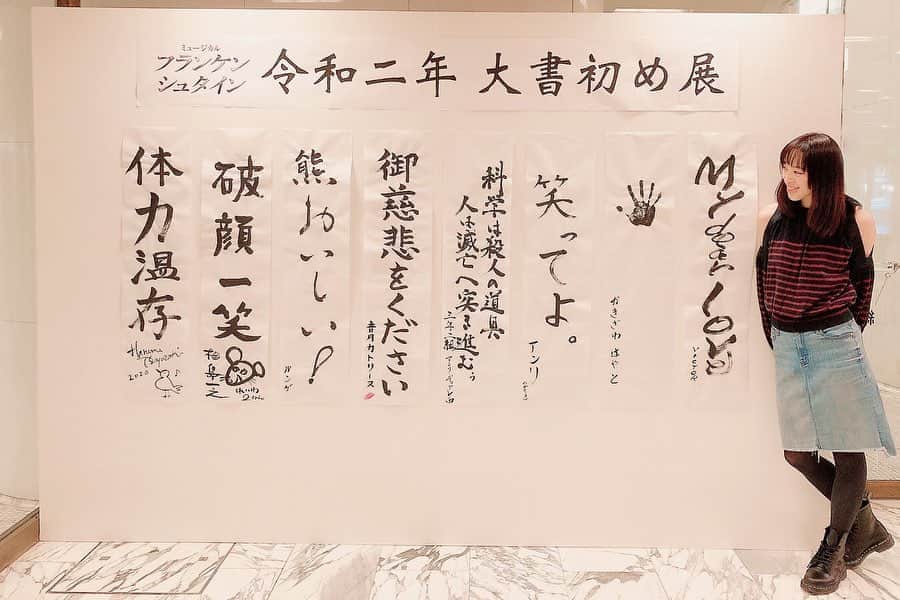 ミュージカル
フランケン
シュタイン
令和二年 大書初め展
Victor
かきざわ はやと
笑ってよ。
アンリ
科学は殺人の道具
人は滅亡へ突き進むぅ
御慈悲をください
音月カトリーヌ
熊おいしい！
ルンゲ
破顔一笑
相島一之
体力温存
2020